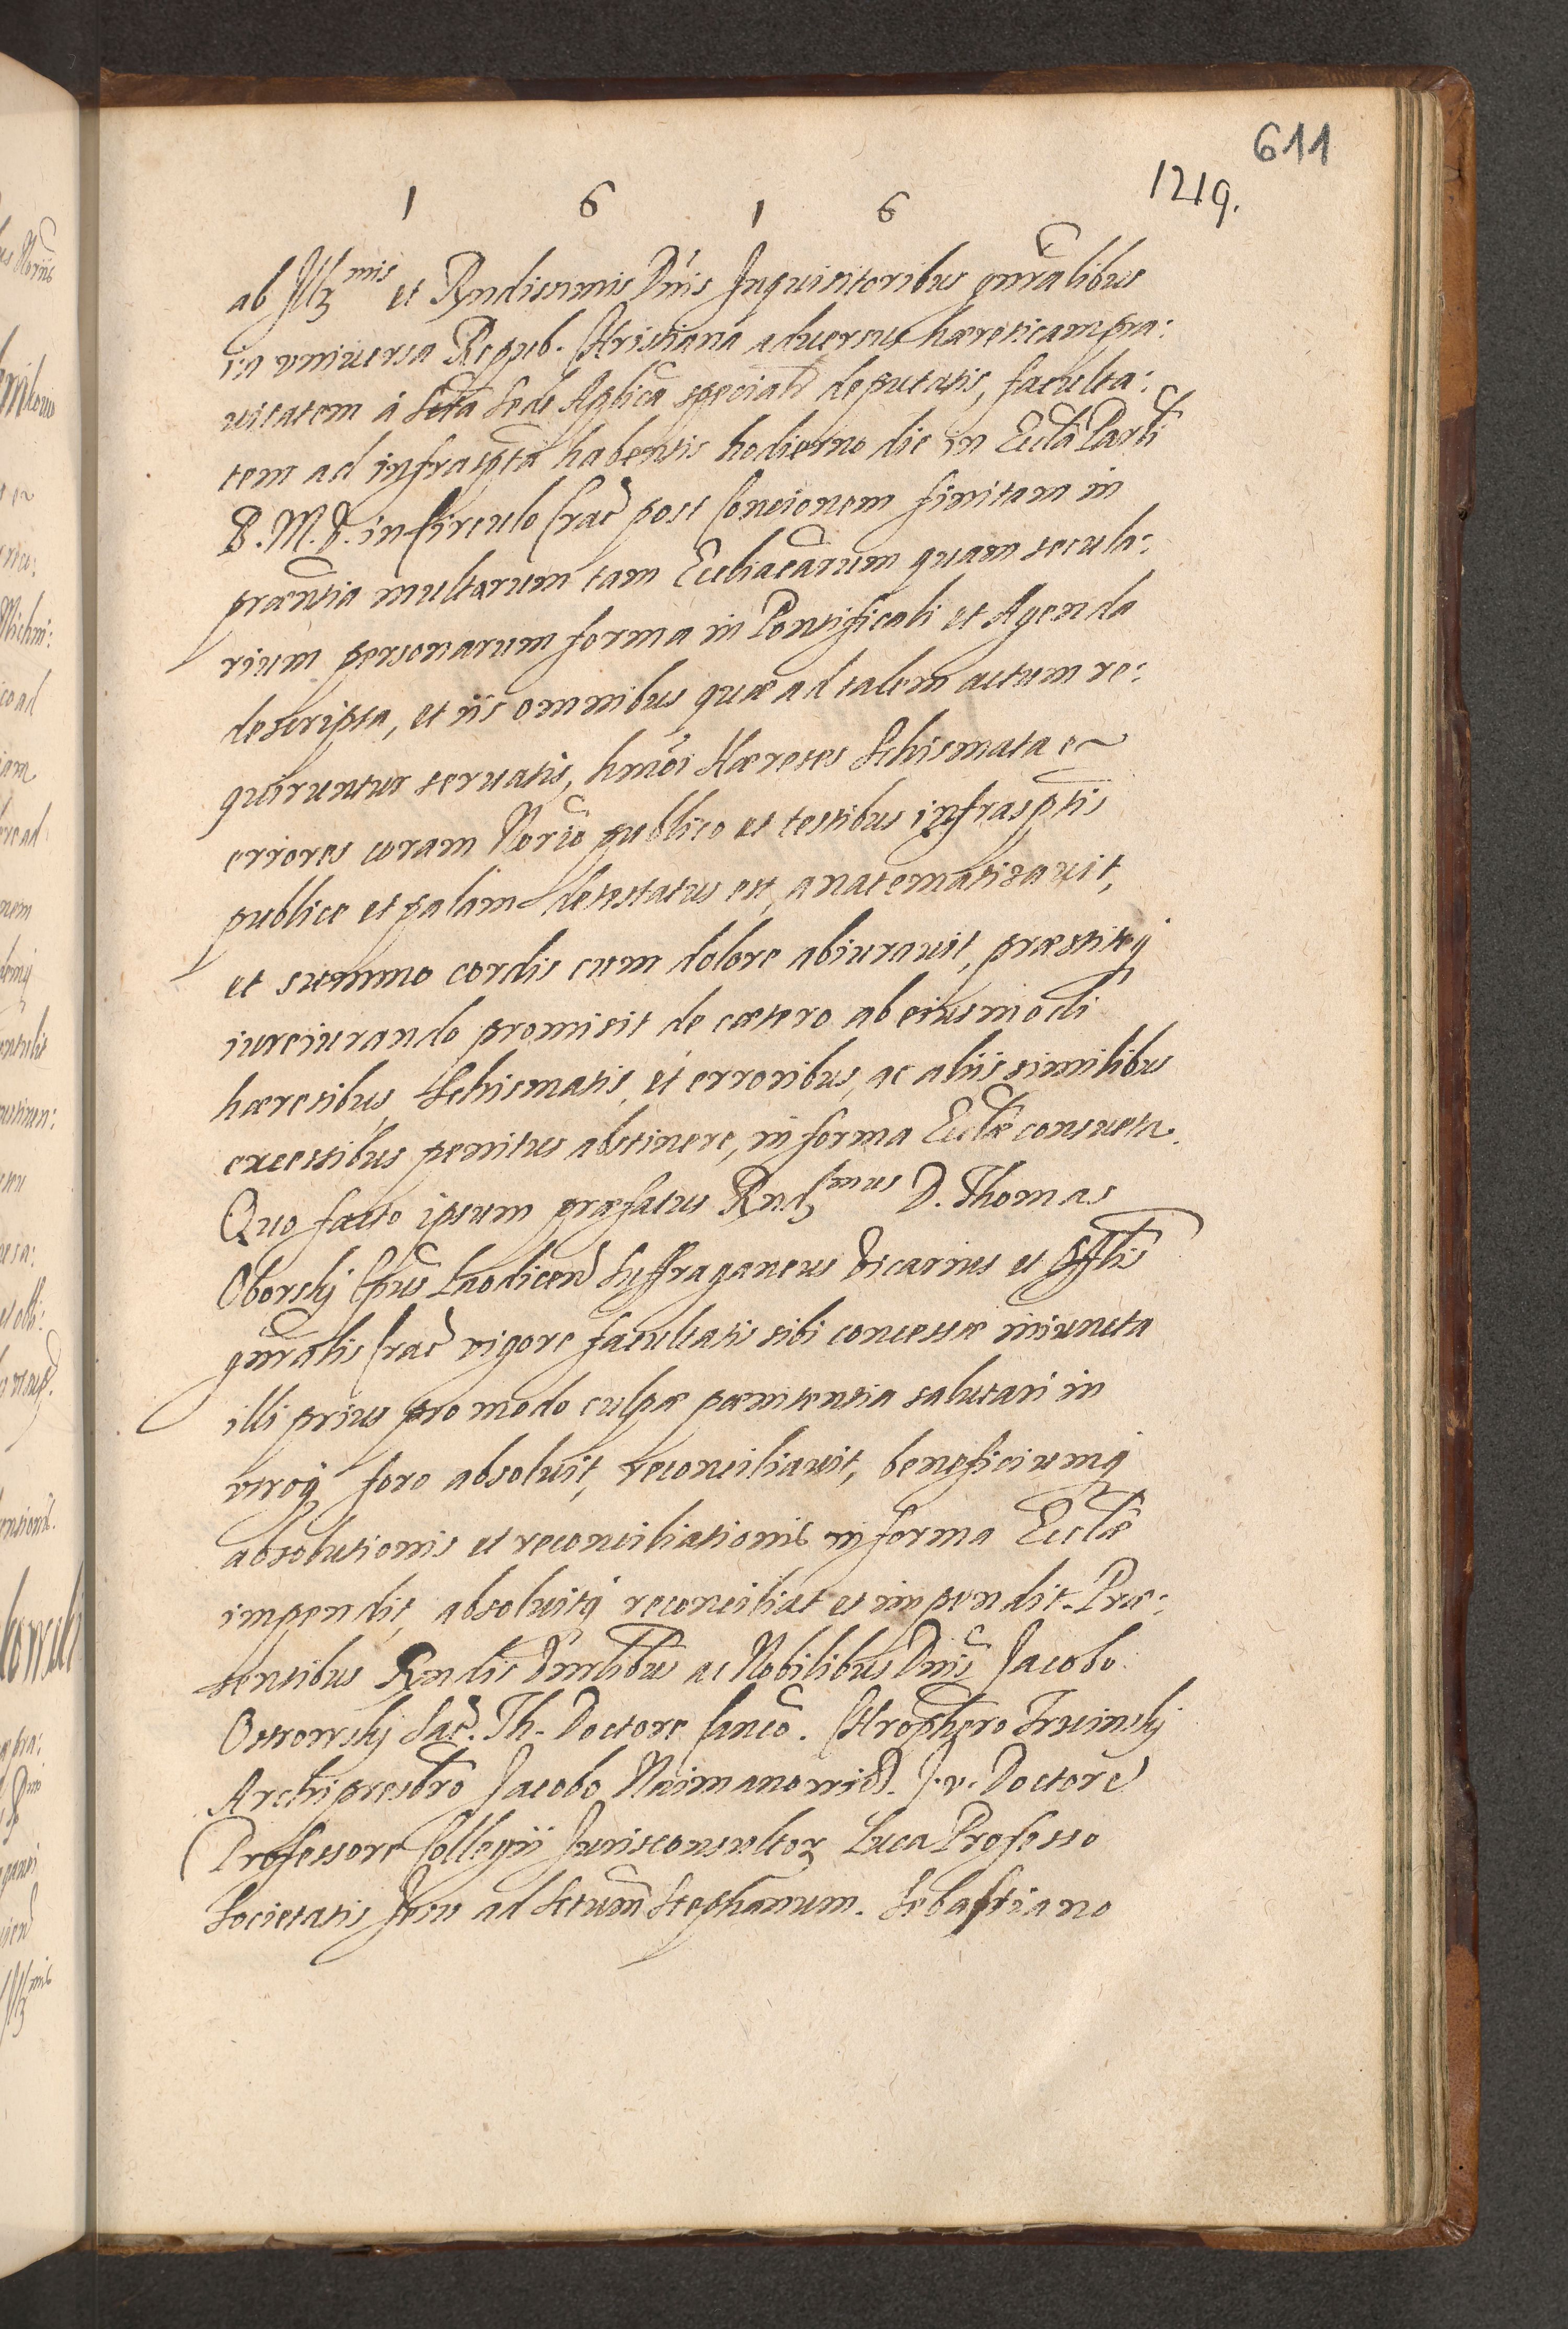 611
1219.
1 6 1 6
ab Illmis et Rndissimis Dnis Inquisitoribus gnralibus
in vniuersa Repub. Christiana aduersus hæreticam pra:
uitatem à Scta Sede Aplica speciali deputatis, faculta:
tem ad infrascpta habentis hodierno die in Eccla Parli
B. M. V. in Circulo Crac post Concionem finitam in
præntia multorum tam Eccliacarum quam secula:
rium personarum forma in Pontificali et Agenda
descripta, et iis omnibus quæ ad talem actum re:
quiruntur seruatis, hmoi Hæreses Schismata et
errores coram Norio publico et testibus infrascptis
publice et palam detestatus est, anatematizauit,
et summo cordis cum dolore abiurauit, præstitoq
iureiurando promisit de cætero ab eiusmodi
hæresibus, Schismatis, et erroribus, ac aliis similibus
excessibus penitus abstinere, in forma Ecclæ consueta.
Quo facto ipsum præfatus Rndsmus D. Thomas
Oborskj Epus Laodicen Suffraganeus Vicarius et Offlis
gnralis Crac vigore facultatis sibi concessæ iniuncta
illi prius pro modo culpæ pænitentia salutari in
vtroq foro absoluit, reconciliauit, beneficiumq
absolutionis et reconciliationis in forma Ecclæ
impendit, absoluitq reconciliat et impendit. Præ:
sentibus Rndis Vnrlibus ac Nobilibus Dnis Jacobo
Ostrowskj Sac. Th. Doctore Canco. Chrophero Trzinskj
Archipresbro Jacobo Naimanowicz J. v. Doctore
Professore Collegii Jurisconsultor Luca Professo
Societatis Jesu ad Sctum Stephanum. Sebastiano